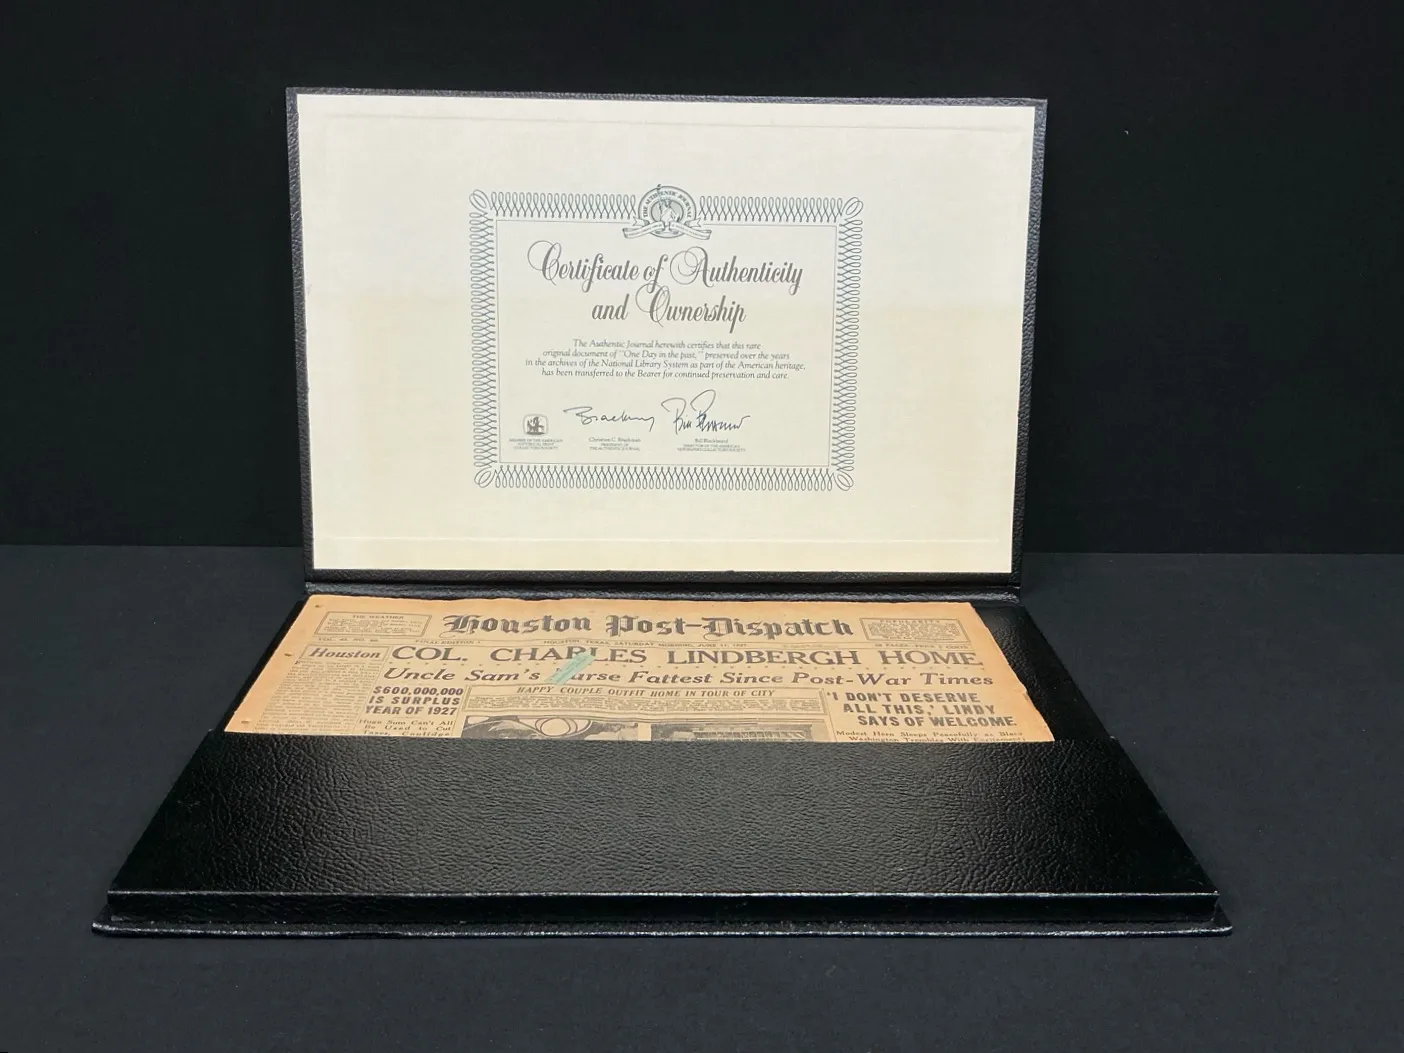 THE AUTHENTIC JOURNAL
Certificate of Authenticity
and Ownership
The Authentic Journal herewith certifies that this rare
original document of "One Day in the past," preserved over the years
in the archives of the National Library System as part of the American heritage,
has been transferred to the Bearer for continued preservation and care.
MEMBER OF THE AMERICAN
HISTORICAL PRINT
COLLECTORS SOCIETY
Christian C. Brackman
PRESIDENT OF
THE AUTHENTIC JOURNAL
Bill Blackbeard
DIRECTOR OF THE AMERICAN
NEWSPAPER COLLECTORS SOCIETY
THE WEATHER
Houston Post-Dispatch
FINAL EDITION
HOUSTON, TEXAS, SATURDAY MORNING, JUNE 11, 1927
Houston
COL. CHARLES LINDBERGH HOME
Uncle Sam's urse Fattest Since Post-War Times
$600,000,000
IS SURPLUS
YEAR OF 1927
Huge Sum Can't All
Be Used to Cut
HAPPY COUPLE OUTFIT HOME IN TOUR OF CITY
'I DON'T DESERVE
ALL THIS,' LINDY
SAYS OF WELCOME
Modest Hero Sleeps Peacefully as Blare
Washington Trembles With Excitement